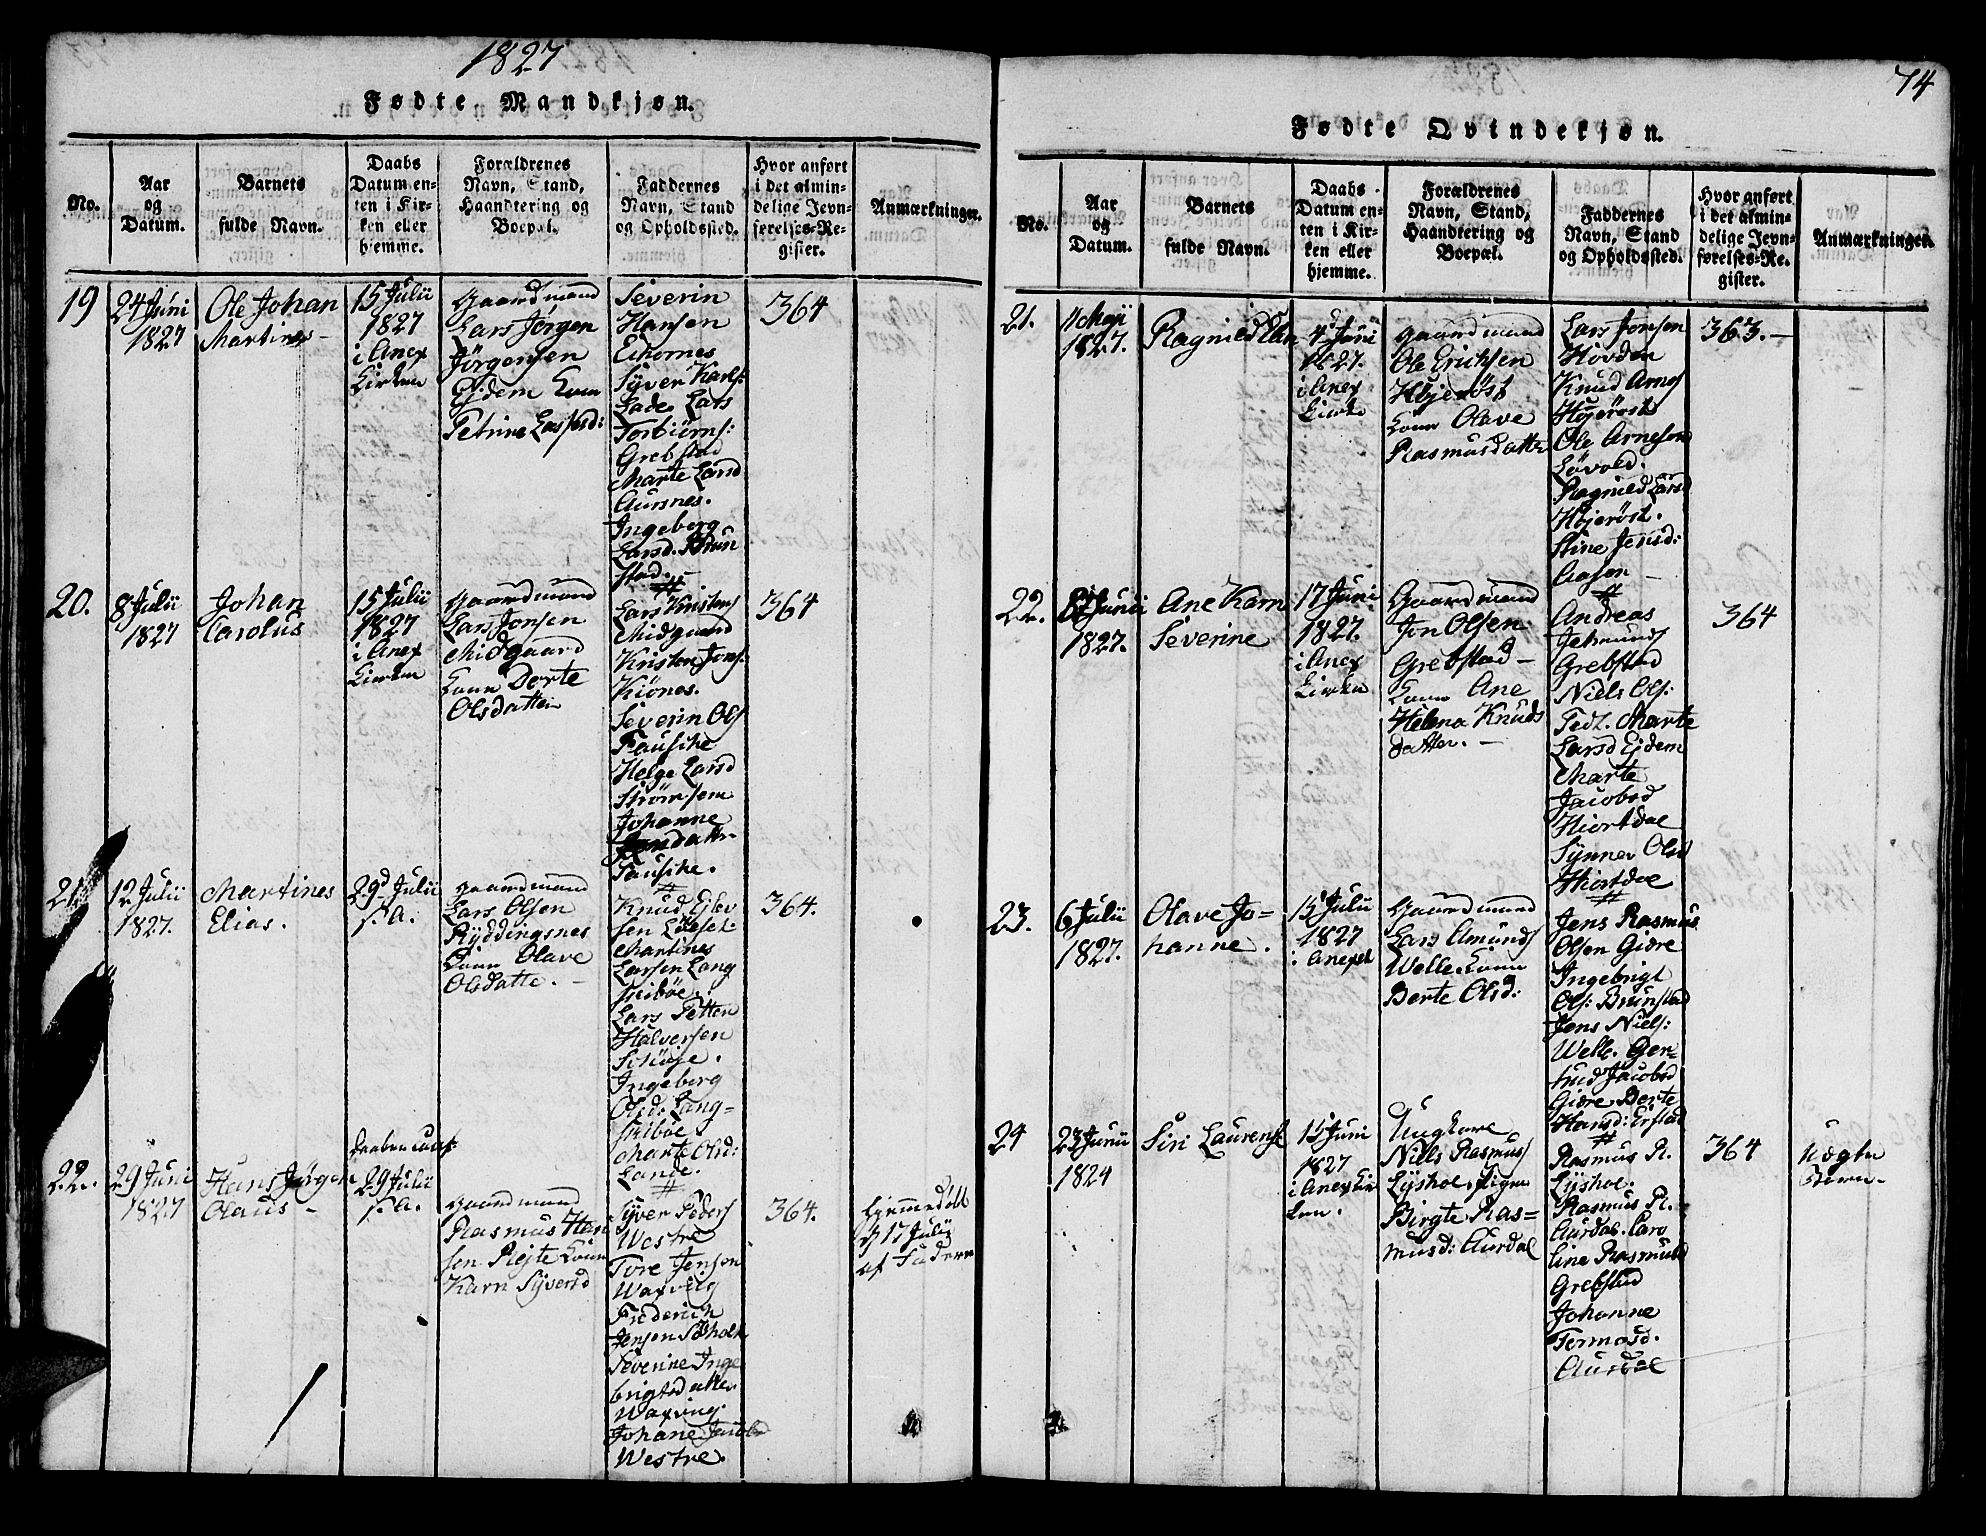 1827
Fødte Mandkjøn.
No.
Aar
og
Datum.
Barnets
fulde Navn.
Daabs
Datum en-
ten i Kir-
ken eller
hjemme.
Forældrenes
Navn, Stand,
Haandtering og
Boepæl.
Faddernes
Navn, Stand
og Opholdssted.
Hvor anført
i det almin-
delige Jevn-
førelses-Re-
gister.
Anmærkninger.
19
24 Juni
1827
Ole Johan
Martines
15 Julii
1827
i Anex
Kirken
Gaardmand
Lars Jørgen
Jörgensen
Ejdem Kone
Petrine Larsd:
Severin
Hansen
Eikornes
Syver Karls:
Lade. Lars
Torbiörns:
Grebstad
Marte Larsd
Aursnes.
Ingeberg
Larsd. Brun
stad.
364
20.
8 Julii
1827
Johan
Carolus
15 Julii
1827
i Anex
Kirken
Gaardmand
Lars Jonsen
Midgaard
Kone Dorte
Olsdatter
Lars Knisten
Midgaard
Kristen Jons:
Kiönes.
Severin Ols
Fauske
Helge Larsd
Strömsem
Johanne
Fauske.
364
21
12 Julii
1827.
Martines
Elias.
29d Julii
s. A.
Gaardmand
Lars Olsen
Ryddingsnes
Kone Olave
Olsdatte. -
Knud Ejlev
sen Löeset.
Martines
Larsen Lang
skiböe.
Lars Petter
Halversen
Ingeberg
Olsd. Lang-
skiböe
Marte Olsd:
Lande.
364.
22.
29 Juni
1827
Hans Jørgen
Olaus -
29 Julii
s. A.
Gaardmand
Rasmus Han
sen Rejte Kone
Karn Syversd
Syver Peders
Westre
Tore Jensen
Waxvig
Frederich
Jensen Söholt
Severine Inge
brigtsdatter
Waxvig.
Johane Jacobs
Westre.
364.
Hjemmedöbt
d 17 Julii
af Faderen
74
Fødte Qvindekjøn.
No.
Aar
og
Datum.
Barnets
fulde Navn.
Daabs
Datum en-
ten i Kir-
ken eller
hjemme.
Forældrenes
Navn, Stand,
Haandtering og
Boepæl.
Faddernes
Navn, Stand
og Opholdssted.
Hvor anført
i det almin-
delige Jevn-
førelses-Re-
gister.
Anmærkninger.
21.
11 Maji
1827.
Ragnild Elen
4d Juni
1827.
i Anex
Kirke
Gaardmand
Ole Erichsen
Højeröst
Kone Olave
Rasmusdatte
Lars Jonsen
Hovden
Knud Arnes
Højeröst
Ole Arnesen
Lövold.
Ragnild Larsd
Højeröst.
Stine Jensd:
Aasen -
363. -
22.
Junii
1827.
Ane Karn
Severine
17 Juni
1827.
i Anex
Kirken
Gaardmand
Jon Olsen
Grebstad -
Kone Ane
Helena Knuds
datter. -
Andreas
Jetmunds
Grebstad
Niels Ols:
Tedt. Marte
Larsd Ejdem
Marte
Jacobsd
Hiortdal
Synnev Olsd
Hiortdal
364
23.
6 Julii
1827.
Olave Jo-
hanne.
15 Julii
1827
i Anexet
Gaardmand
Lars Amunds
Welle. Kone
Berte Olsd:
Jens Rasmus
Olsen Giære
Ingebrigt
Ols: Brunstad
Jens Niels:
Welle. Ger-
trud Jacobsd
Giære Berte
Hansd: Erstad
24
23 Junii
1824
Siri Laurense
15 Juni
1827
i Anex Kir
ken.
Ungkare
Niels Rasmus
Lyshol. Pigen
Birgte Ras-
musd: Aurdal
Rasmus R.
Lyshol.
Rasmus R.
Aurdal. Caro
line Rasmusd
Grebstad
Johanne
Tormosd.
Aurdal
364
Uægte
Barn -